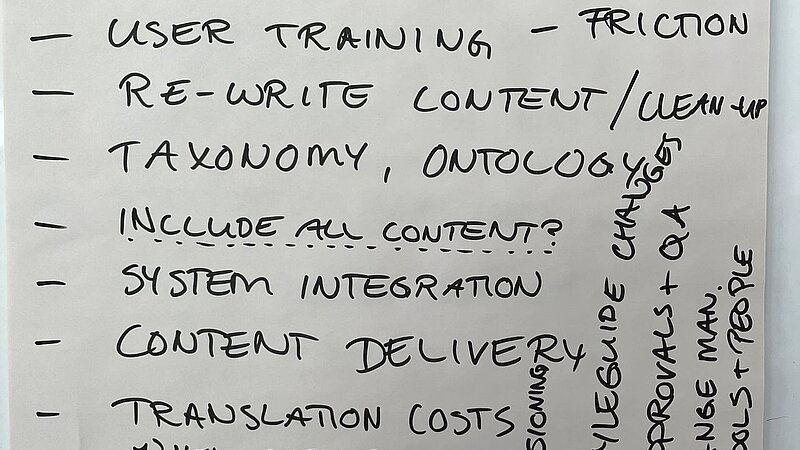 — USER TRAINING — FRICTION
— RE-WRITE CONTENT / CLEAN-UP
— TAXONOMY, ONTOLOGY
— INCLUDE ALL CONTENT?
— SYSTEM INTEGRATION
— CONTENT DELIVERY
— TRANSLATION COSTS
SIONING
YLEGUIDE CHANGES
PROVALS + QA
NGE MAN.
OLS + PEOPLE